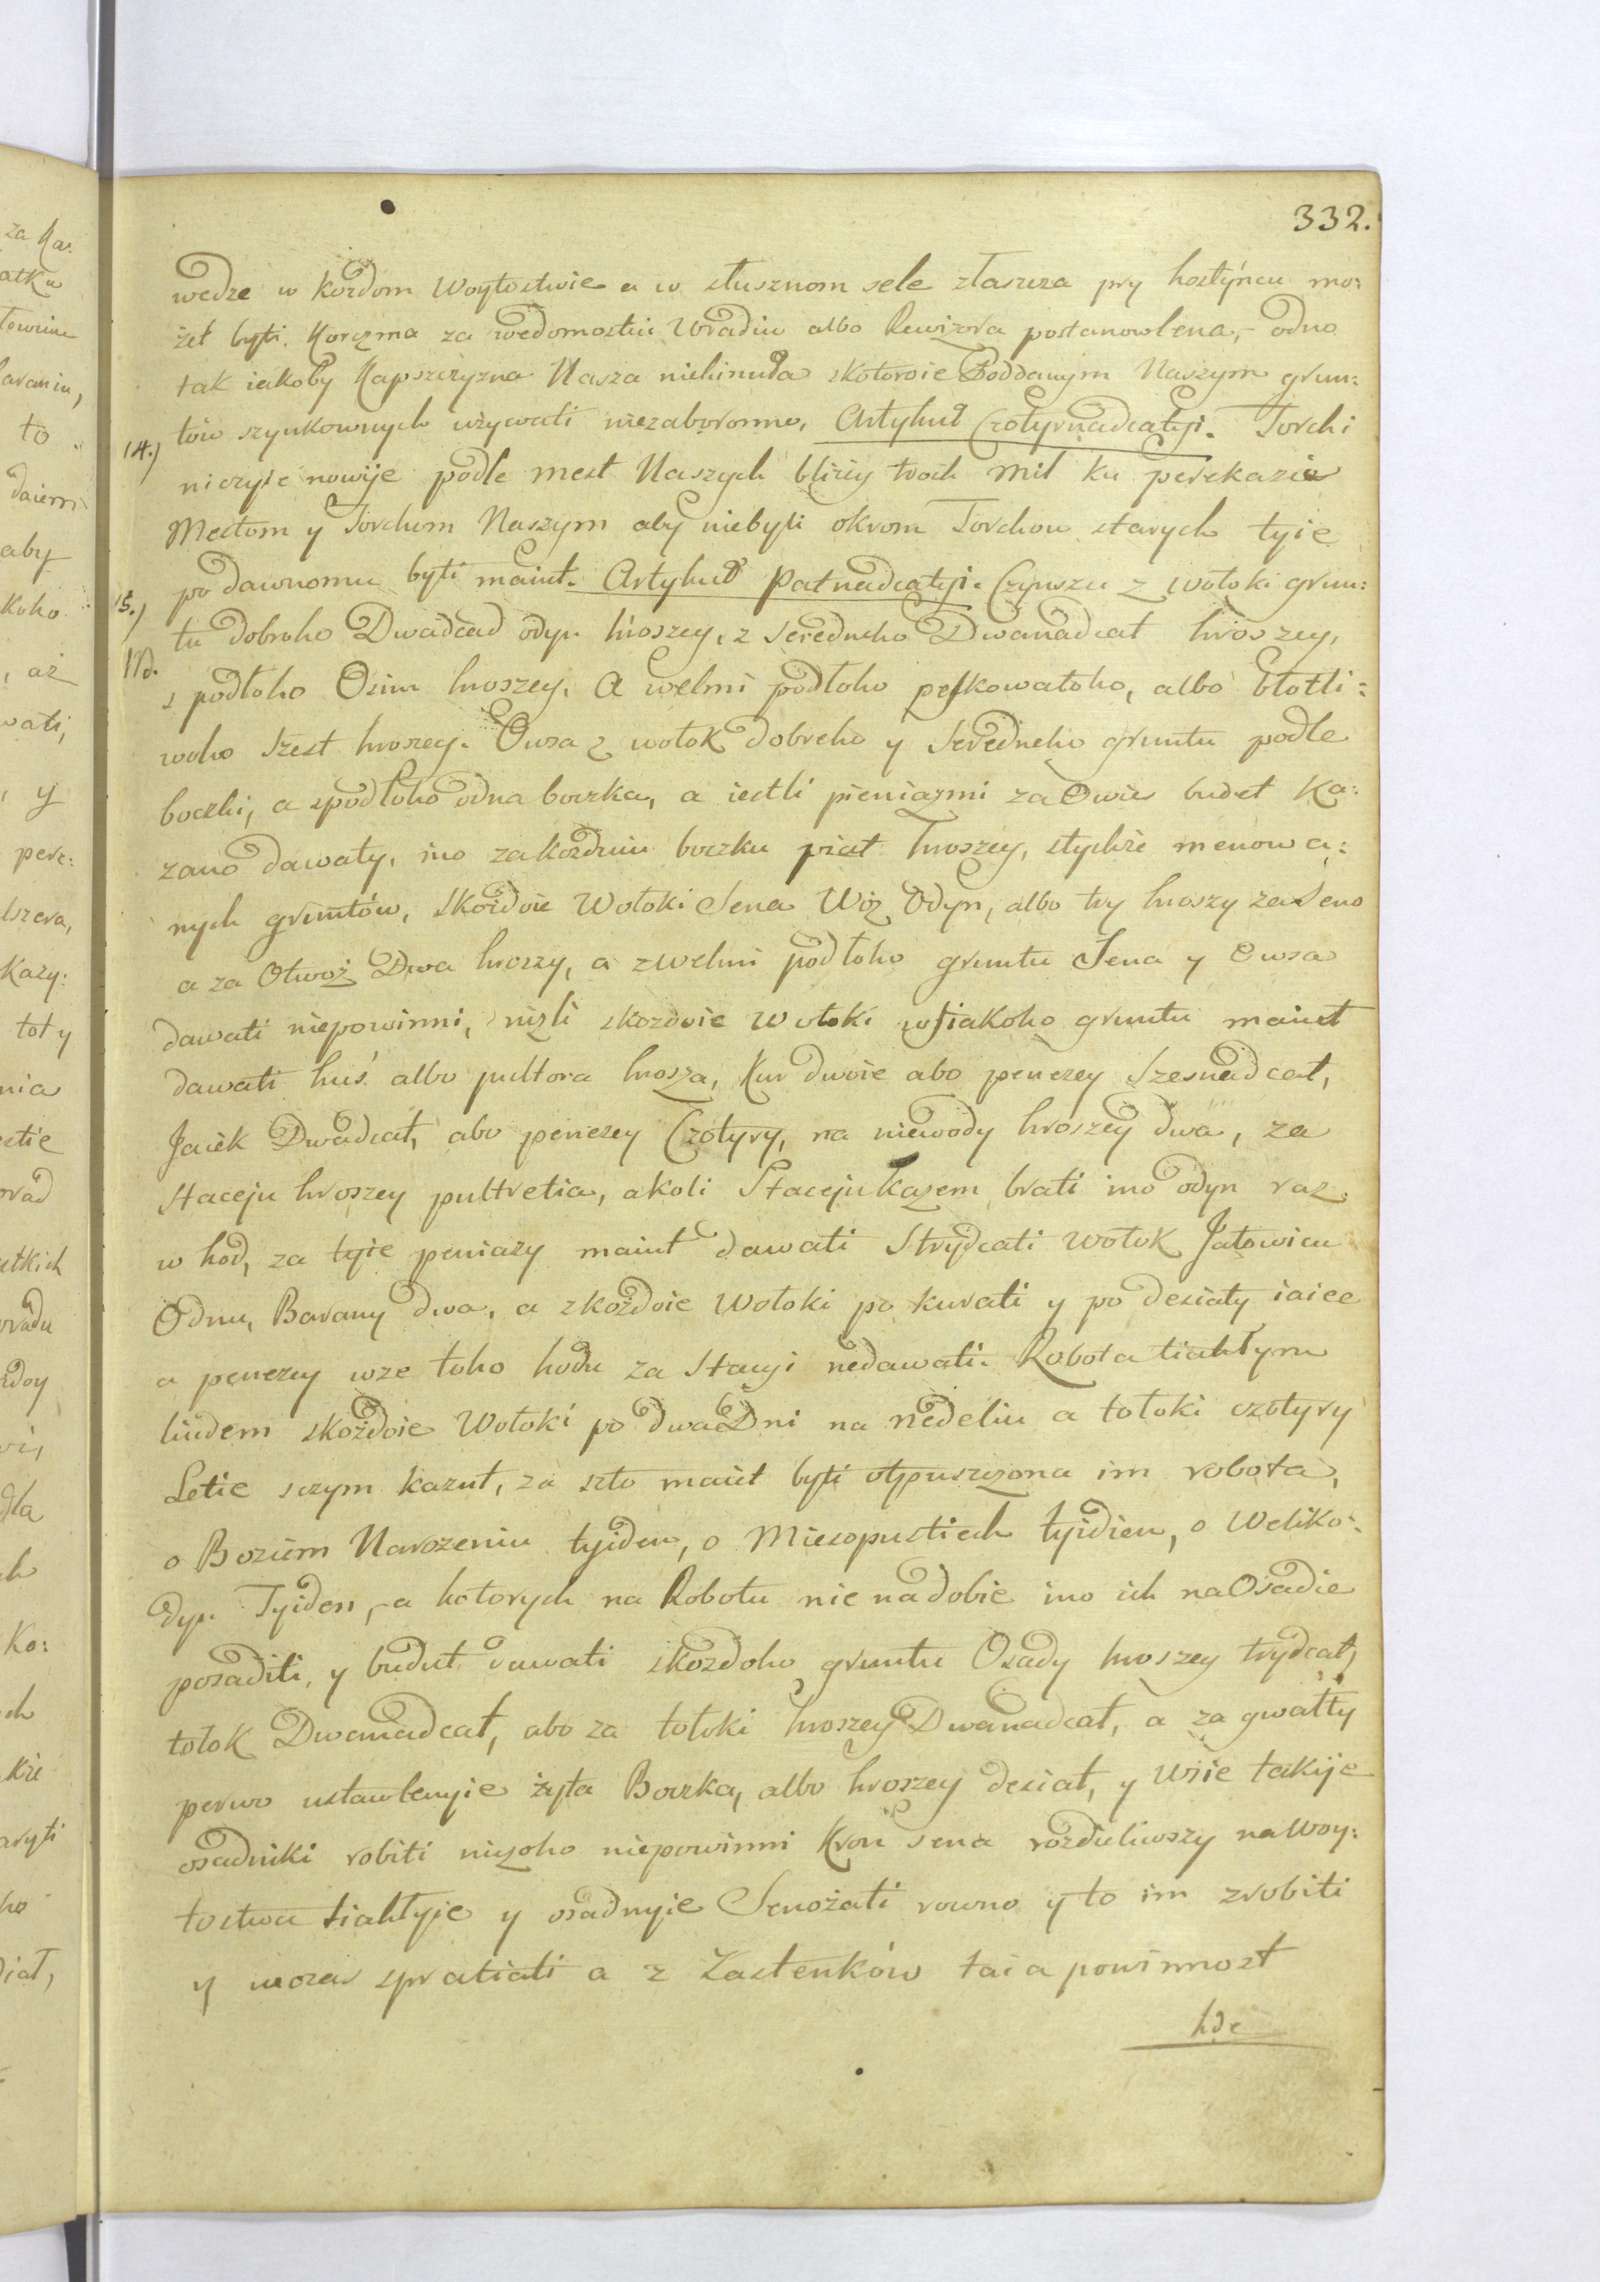 332.
wedze w kożdom Woytostwie a w słusznom sele złaszcza pry hostyńcu mo:
żet byti. Korczma za wedomostiu Uradiu albo Rewizora postanowlena,- odno
tak iakoby Kapszczyzna Nasza niehinuła skotoroie Poddanym Naszym grun:
tów szynkownych używati niezaboronno, Artykuł Czotyrnadcatyi. Torhi
14.)
niczyie nowije podle mest Naszych bliżey troch mil ku perekazie
Mestom y Torchom Naszym aby niebyli okrom Torchow starych tyie
po dawnomu byti maiut. Artykuł Patnadcatyi. Czynszu z wołoki grun:
15.)
tu dobroho Dwadcad odyn hroszey, z seredneho Dwanadcat hroszey,
Nd.
s podłoho Osim hroszey, A welmi podłoho peskowatoho, albo błotli:
woho szest hroszey. Owsa z wołok dobreho y seredneho gruntu podle
boczki, a spodłoho odna boczka, a iestli pieniazmi za Owies budet Ka:
zano dawaty, ino zakożduiu boczku piat hroszey, stychże menowa:
nych gruntów, skożdoie Wołoki Sena Woz Odyn, albo try hroszy za Seno
a za Otwoż Dwa hroszy, a zwelmi podłoho gruntu Sena y Owsa
dawati niepowinni, niżli skożdoie wołoki wsiakoho gruntu maiut
dawati huś albo pultora hrosza, Kur dwoie abo penezey szesnadcat,
Jaiek Dwadcat, abo penezey Czotyry, na niewody hroszey dwa, za
staceju hroszey pultretia, akoli Staceju każem brati ino odyn raz
w hod, za tyie peniazy maiut dawati Strydcati wołok Jałowicu
Odnu, Barany dwa, a zkożdoie Wołoki po kurati y po desiaty iaiec
a penezey wże toho hodu za Stacyi nedawati. Robota tiahłym
liudem skożdoie Wołoki po dwa Dni na nedeliu a tołoki czotyry
Letie sczym każut, za szto maiut byti otpuszczona im robota,
o Bożiem Narożeniu tyiden, o Miesopustiech tyidien, oWeliko:
dyn Tyiden, a kotorych na Robotu nie nadobie ino ich na Osadie
posaditi, y budut dawati skożdoho gruntu Osady hroszey trydcat,
tołok Dwanadcat, abo za tołoki hroszey Dwanadcat, a za gwałty
perwo ustawlenyie żyta Boczka, albo hroszey desiat, y wsie takije
osadniki robiti niczoho niepowinni Krom sena rozdieliwszy na Woy:
tostwa tiahłyje y osadnyie Senożati rowno y to im zrobiti
y wozas spratiati a z Zastenków taia powinnost
hde